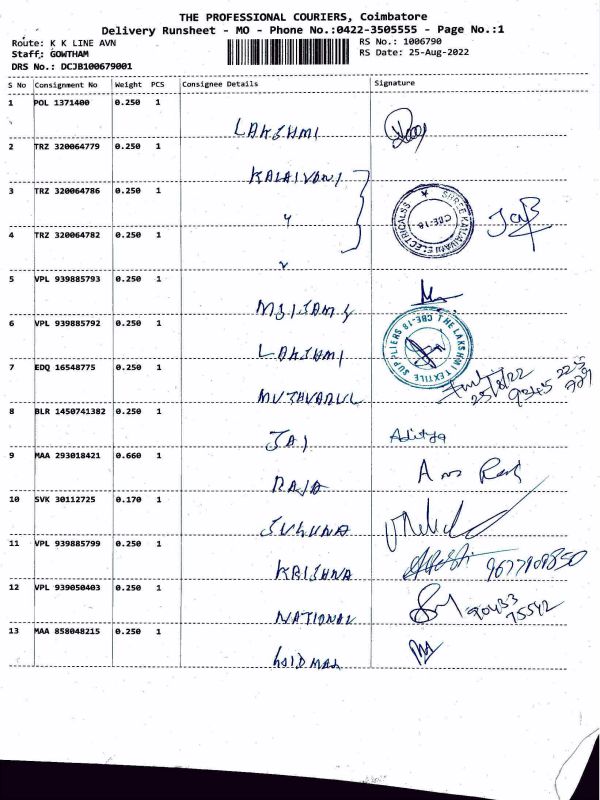 THE PROFESSIONAL COURIERS, Coimbatore
Delivery Runsheet - MO - Phone No.:0422-3505555 - Page No.:1
Route: K K LINE AVN
RS No.: 1006790
Staff: GOWTHAM
RS Date: 25-Aug-2022
DRS No.: DCJB100679001
S No Consignment No Weight PCS Consignee Details Signature
1 POL 1371400 0.250 1
LAKSHMI
2 TRZ 320064779 0.250 1
KALAIVANI
3 TRZ 320064786 0.250 1
SHREE KALAIVANI ELECTRICALSS
CBE-18
4 TRZ 320064782 0.250 1
5 VPL 939885793 0.250 1
6 VPL 939885792 0.250 1
LAKSHMI
THE LAKSHMI TEXTILE SUPPLIERS CBE-18
7 EDQ 16548775 0.250 1
25/8/22
8 BLR 1450741382 0.250 1
JAI Aditya
9 MAA 293018421 0.660 1
RAJA
10 SVK 30112725 0.170 1
SUGUNA
11 VPL 939885799 0.250 1
KRISHNA
12 VPL 939050403 0.250 1
NATIONAL 90433
75542
13 MAA 858048215 0.250 1